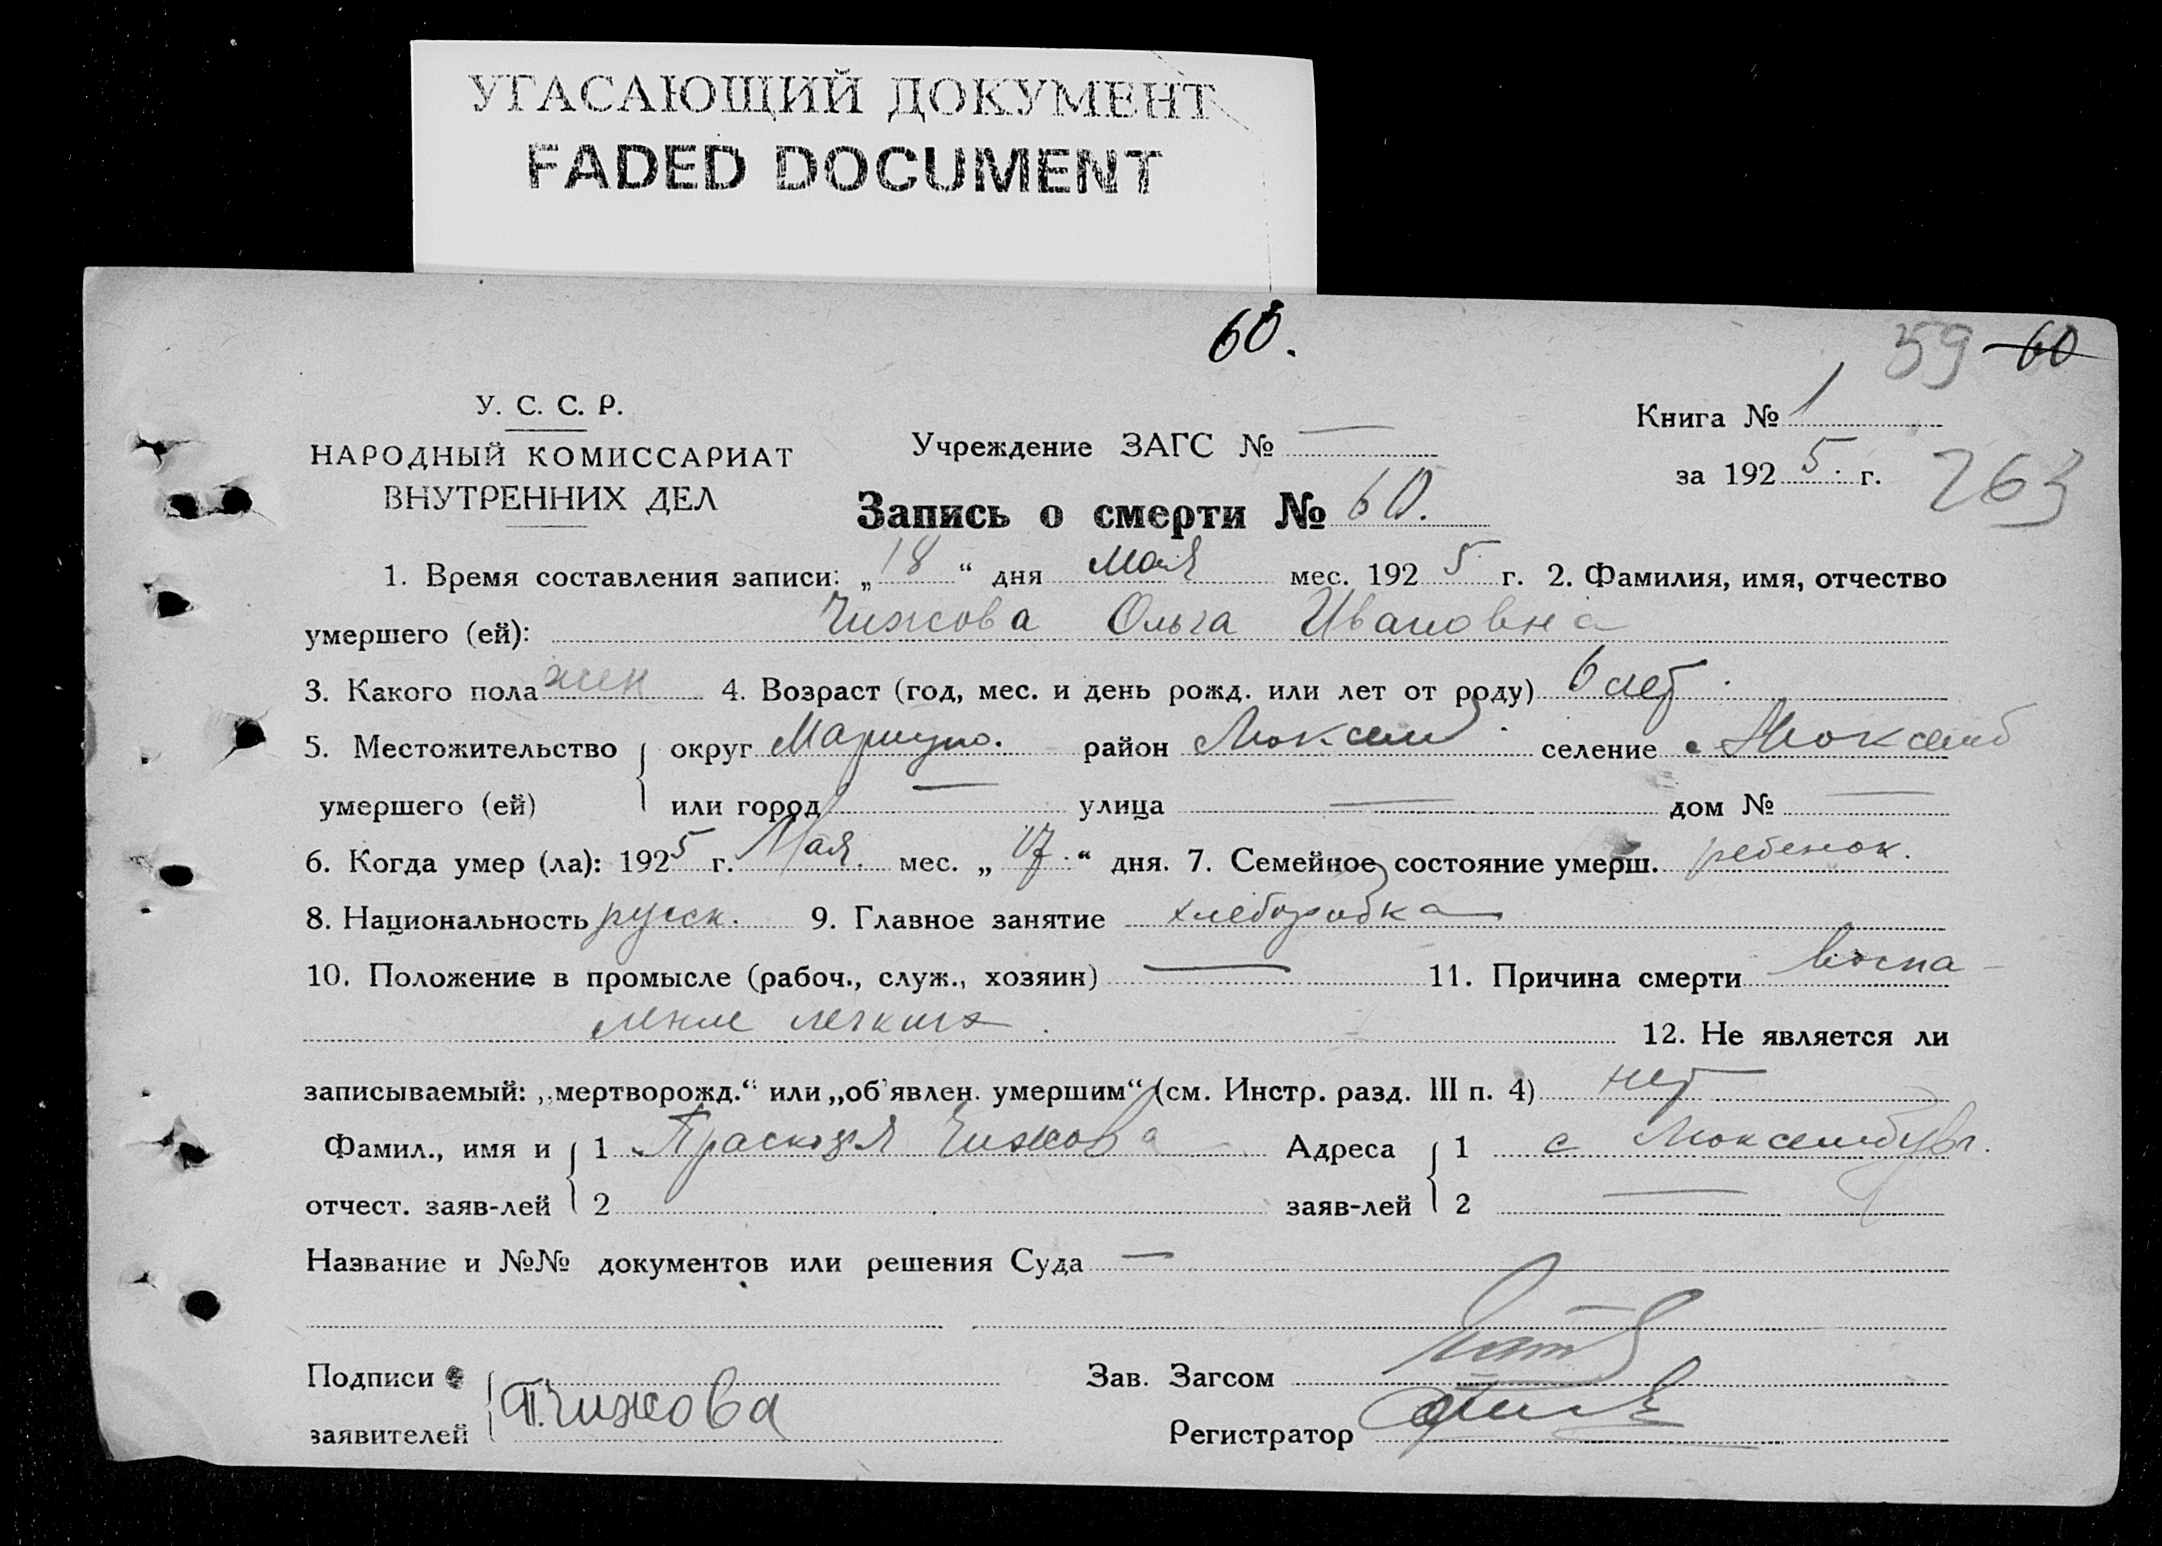 УГАСАЮЩИЙ ДОКУМЕНТ
FADED DOCUMENT
60.
59 60
У. С. С. Р.
НАРОДНЫЙ КОМИССАРИАТ
ВНУТРЕННИХ ДЕЛ
Учреждение ЗАГС № —
Книга № 1
за 1925 г.
263
Запись о смерти № 60.
1. Время составления записи: „18“ дня Мая мес. 1925 г. 2. Фамилия, имя, отчество
умершего (ей): Чижова Ольга Ивановна
3. Какого пола жен 4. Возраст (год, мес. и день рожд. или лет от роду) 6 лет.
5. Местожительство округ Мариуп. район Люксем. селение с Люксемб
умершего (ей) или город — улица — дом № —
6. Когда умер (ла): 1925 г. Мая. мес. „17.“ дня. 7. Семейное состояние умерш. ребенок.
8. Национальность русск. 9. Главное занятие хлеборобка
10. Положение в промысле (рабоч., служ., хозяин) — 11. Причина смерти воспа-
ление легких. 12. Не является ли
записываемый: „мертворожд.“ или „об'явлен. умершим“ (см. Инстр. разд. III п. 4) нет
Фамил., имя и 1 Прасковья Чижова Адреса 1 с Люксембург.
отчест. заяв-лей 2 заяв-лей 2 —
Название и №№ документов или решения Суда —
Подписи П. Чижова Зав. Загсом
заявителей Регистратор